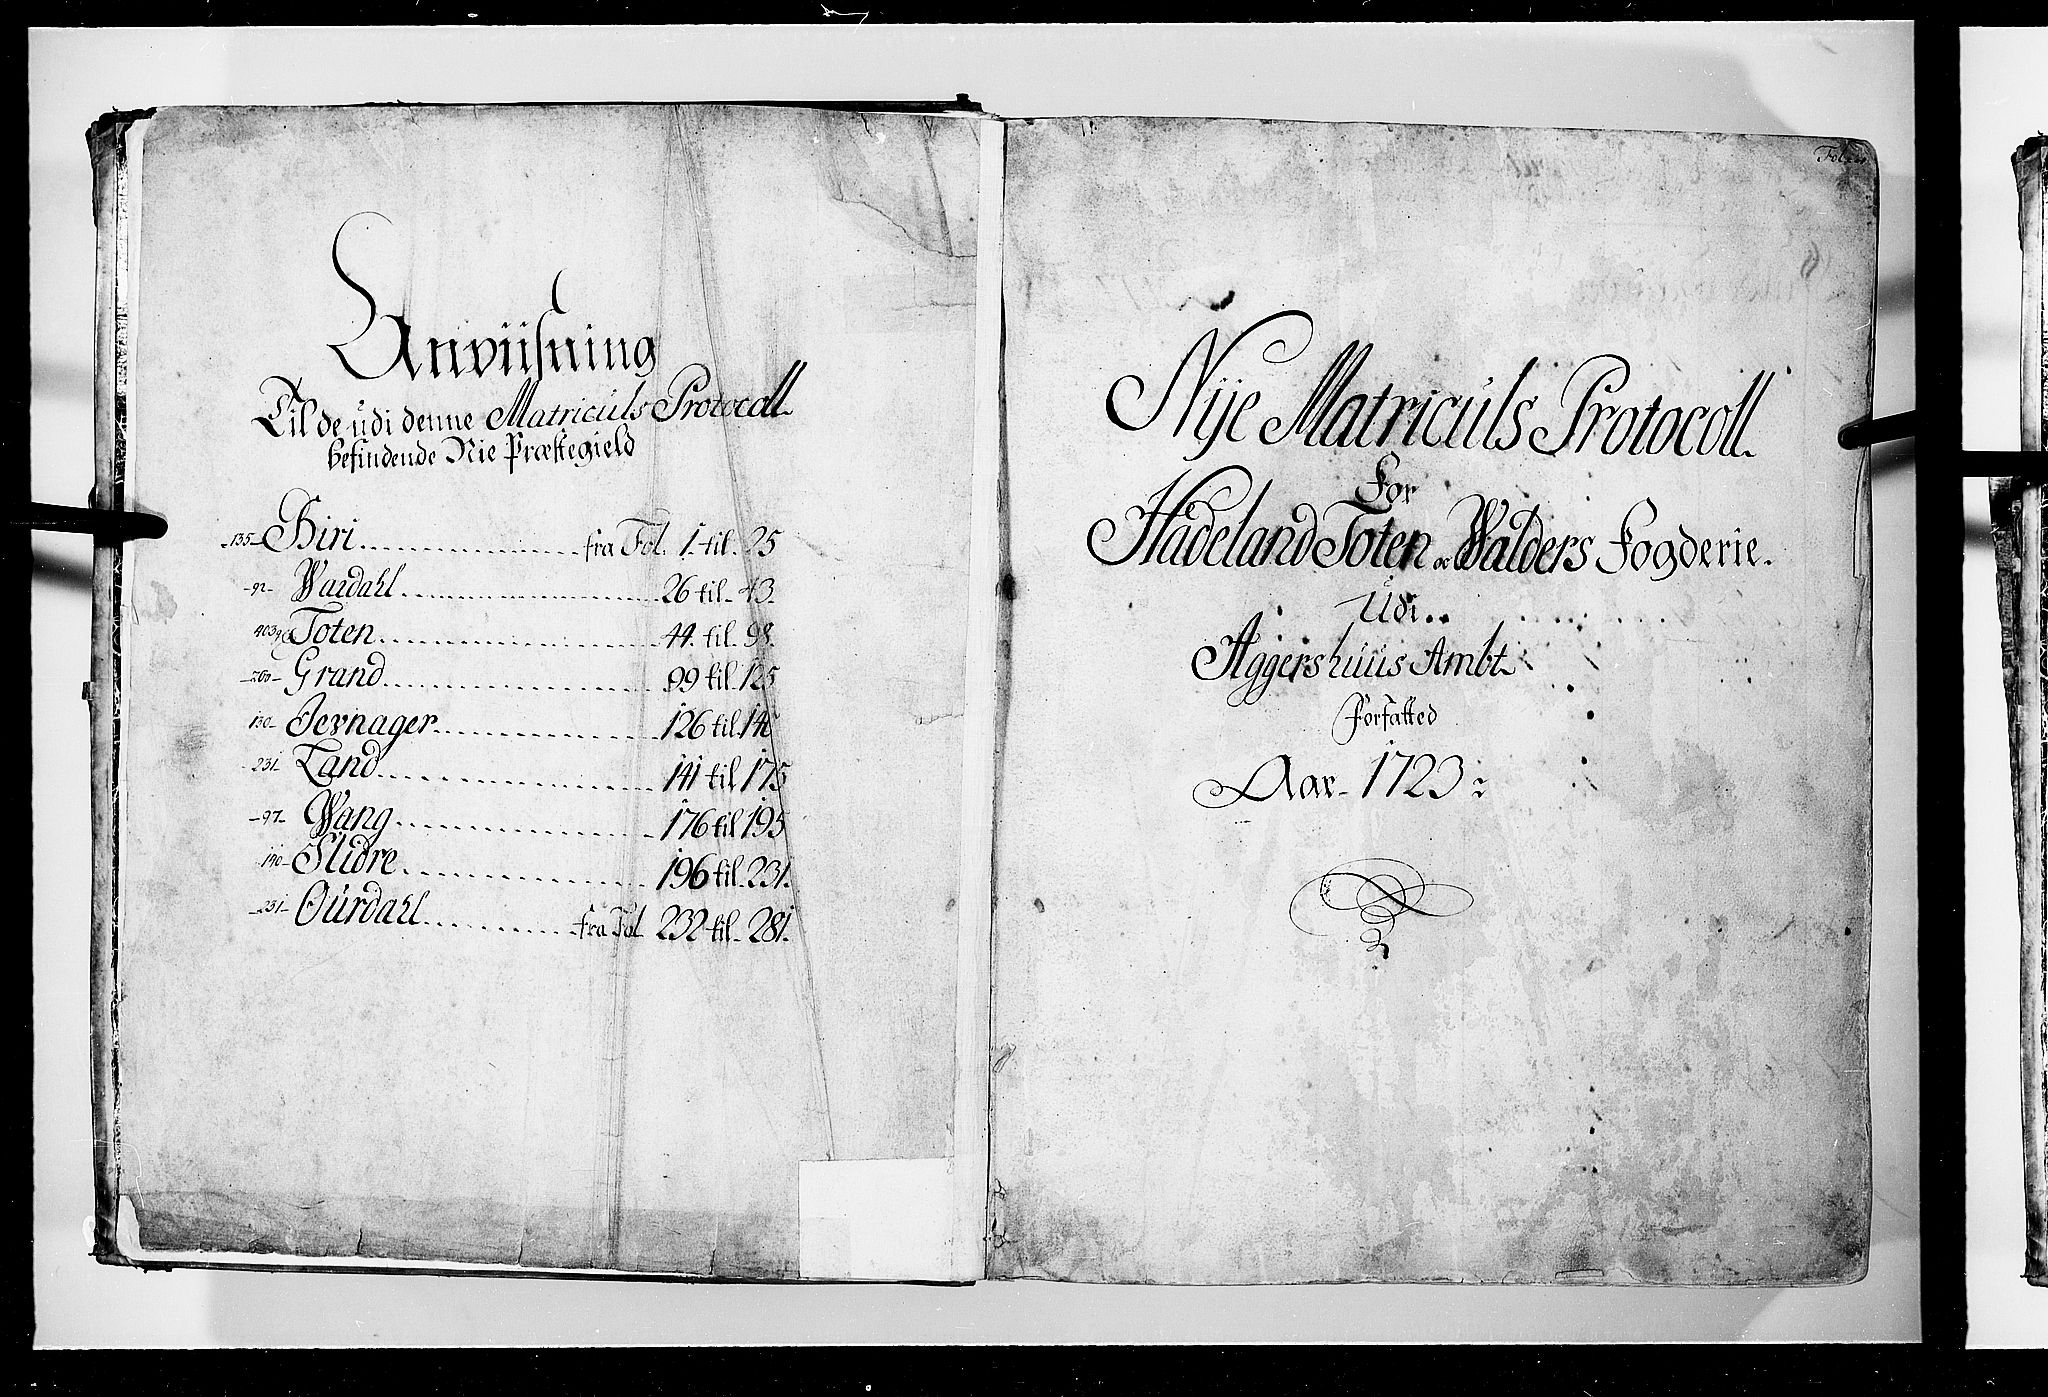 Anviisning
Til de udi denne Matriculs Protocoll
befindende Nie Præstegield
-135- Biri fra Fol. 1. til. 25
-92- Wardahl 26 til. 43.
403 Toten 44. til. 98.
-260- Grand 99 til 125
130- Jevnager 126 til 140
231- Land 141 til 175
-97- Wang 176 til 195
140- Slidre 196 til. 231.
-231- Ourdahl fra Fol 232 til. 281.
Fol.
Nÿe Matriculs Protocoll.
For
Hadeland Toten oc Walders Fogderie.
Udi
Aggershuus Ambt
Forfatted
Aar 1723